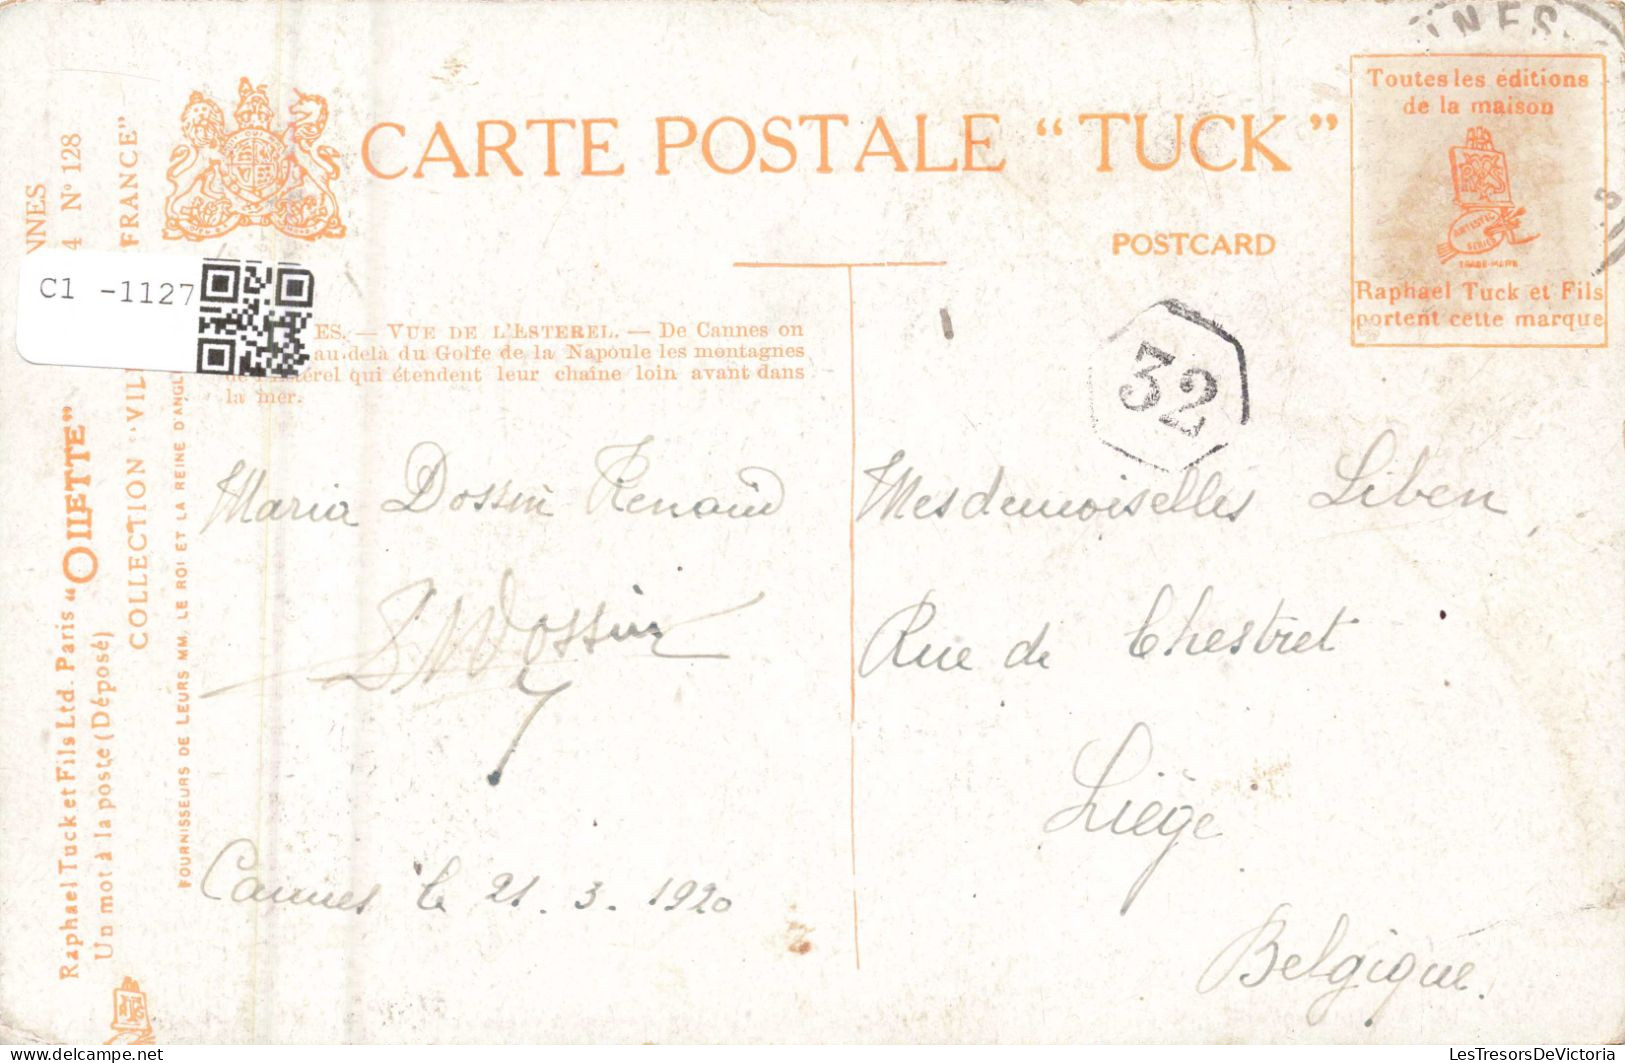 NNES
CARTE POSTALE “TUCK”
POSTCARD
Toutes les éditions
de la maison
ARTISTIC
SERIES
TRADE-MARK
Raphael Tuck et Fils
portent cette marque
C1 -1127
ES. — VUE DE L'ESTEREL. — De Cannes on
au-delà du Golfe de la Napoule les montagnes
de l'Estérel qui étendent leur chaîne loin avant dans
la mer.
32
Maria Dossin Renand
Dossin
Cannes le 21. 3. 1920
Mesdemoiselles Liben
Rue de Chestret
Liège
Belgique.
NNES
4 Nº 128
FRANCE”
COLLECTION VIL
FOURNISSEURS DE LEURS MM. LE ROI ET LA REINE D'ANGL
Raphael Tuck et Fils Ltd. Paris “OILETTE”
Un mot à la poste (Déposé)
LesTresorsDeVictoria